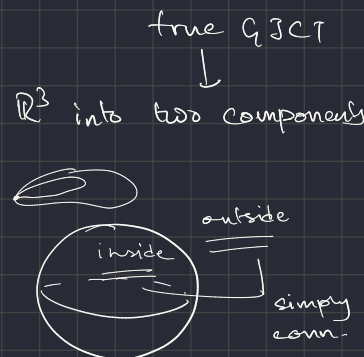 true GJCT
ℝ³ into two components
outside
inside
simply
conn.